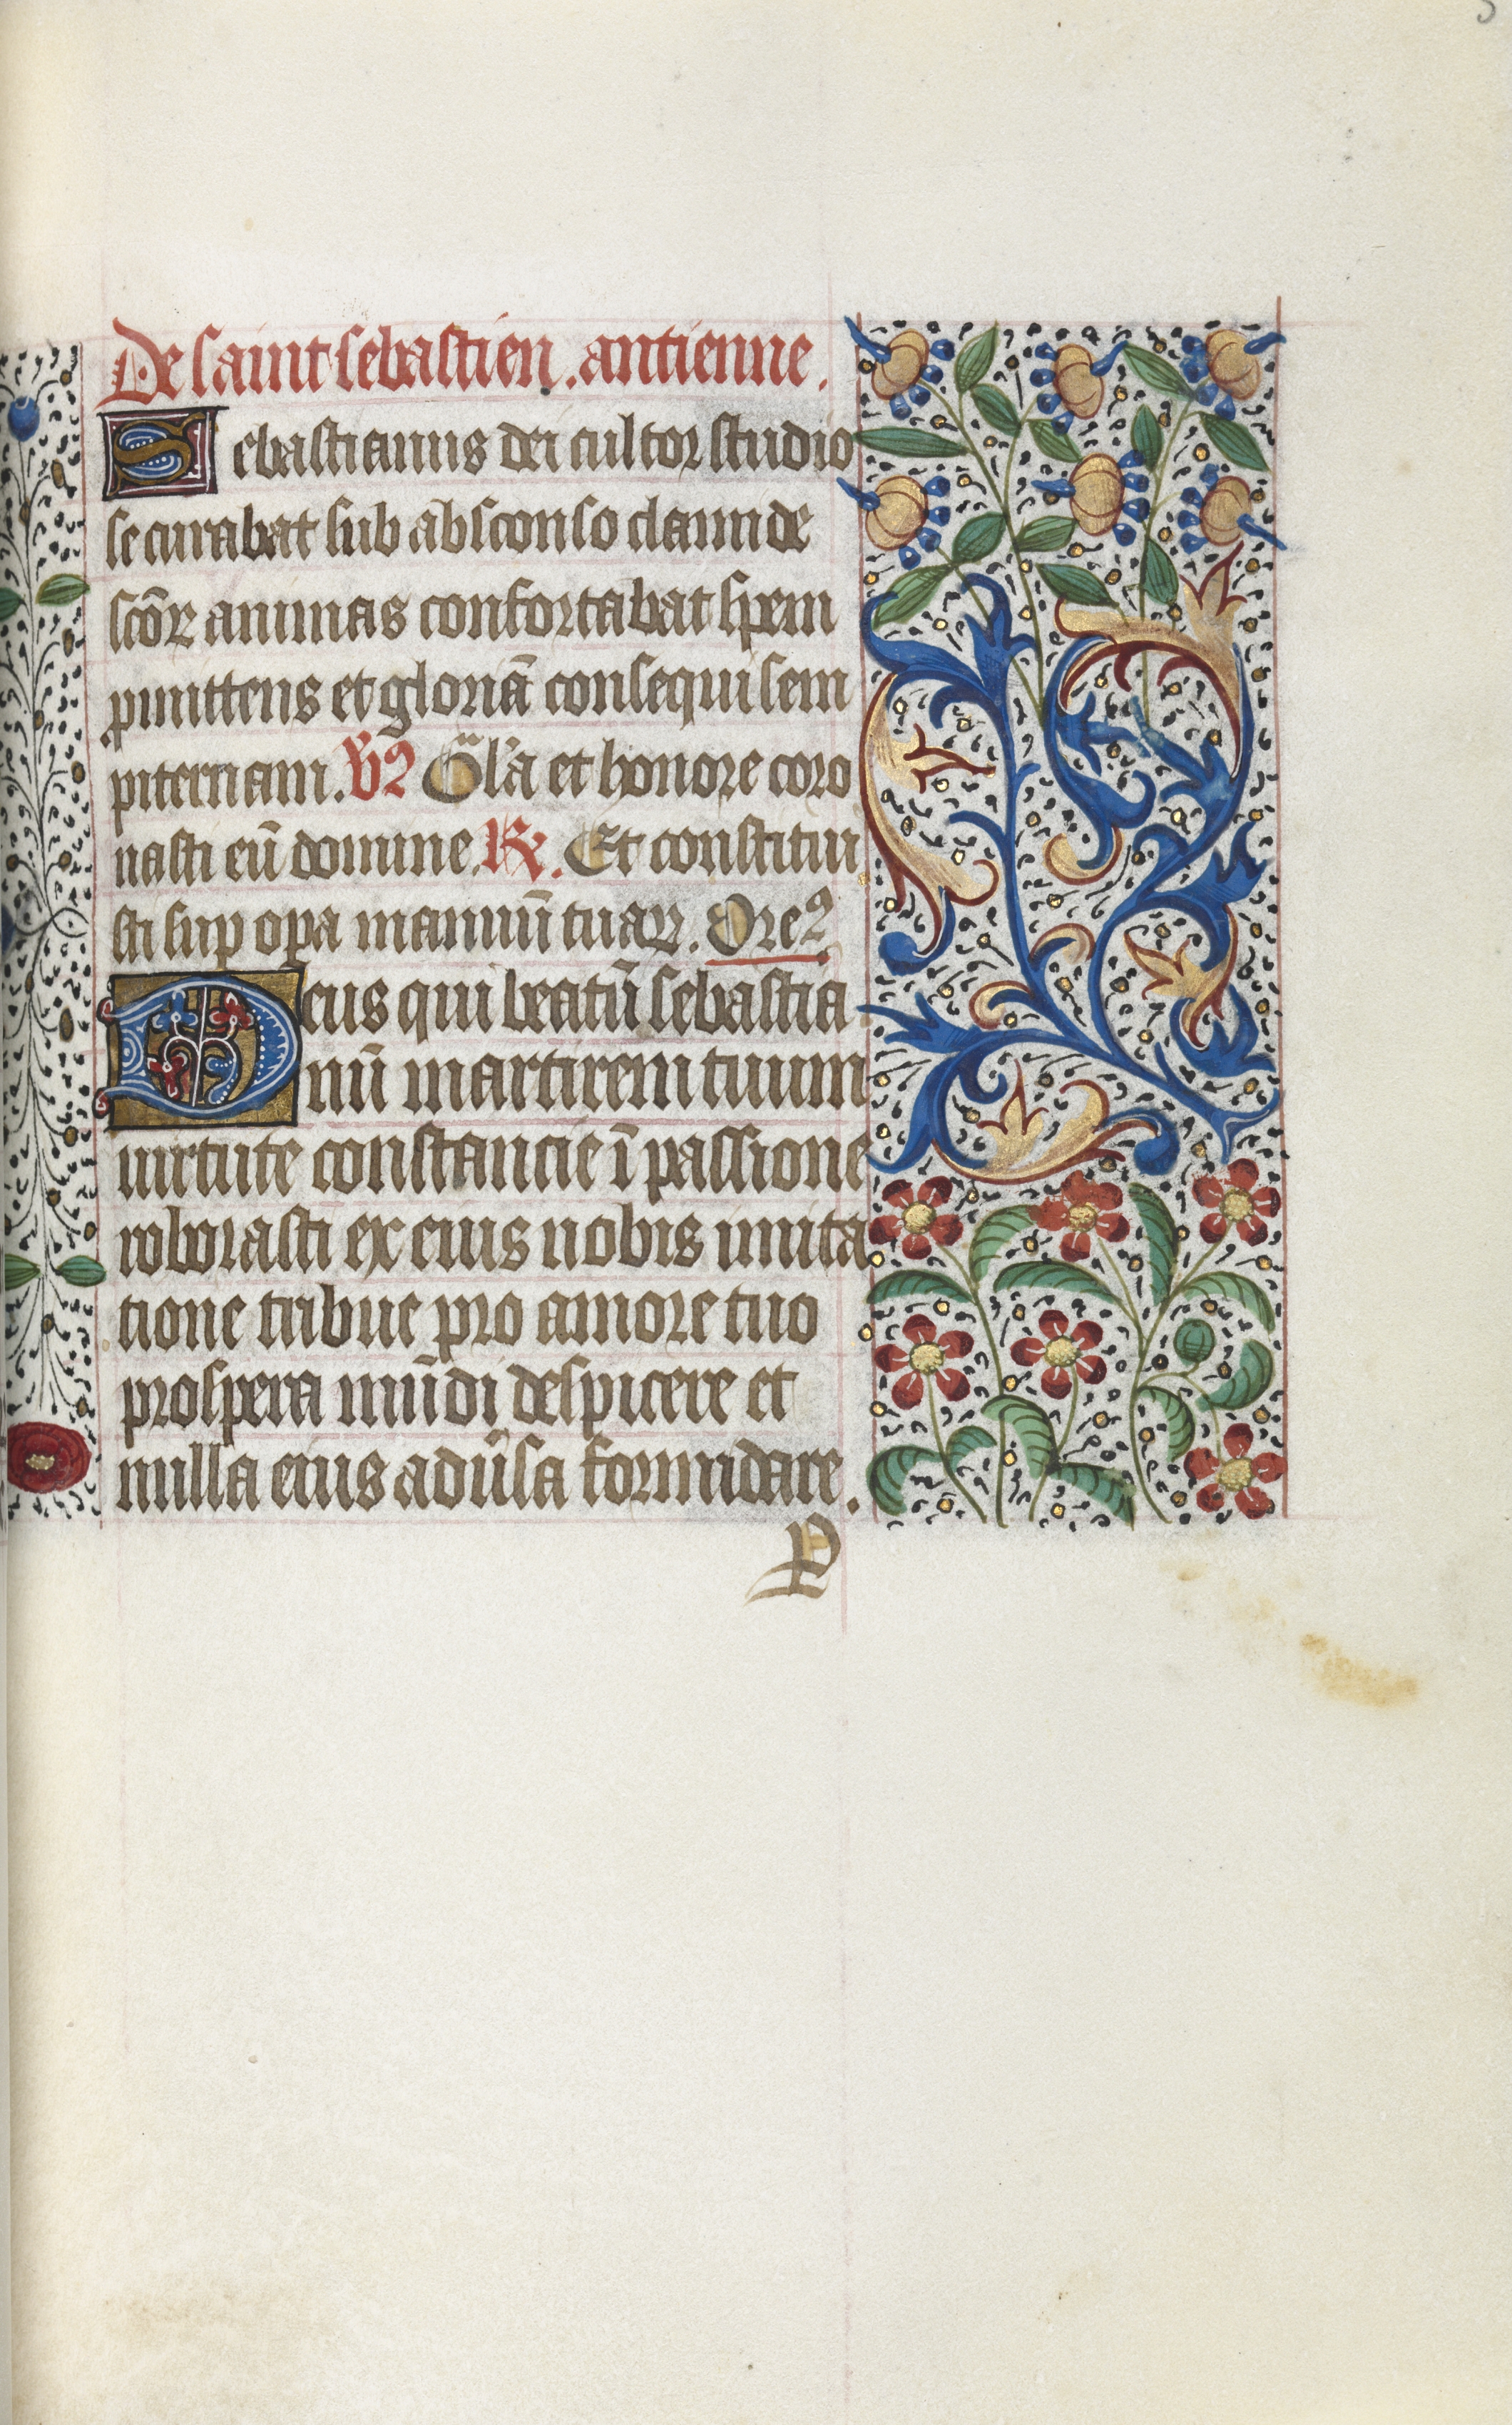 De saint sebastien. antienne.
Sebastianus dei cultor studio
se curabat sub absconso clamide
scōꝝ animas confortabat spem
ꝓmittens et gloriā consequi sem
piternam. Vꝰ Gl'ia et honore coro
nasti eū domine. ℟. Et constitui
sti suꝑ oꝑa manuū tuaꝝ. Oreꝰ
Deus qui beatū sebastia
nū martirem tuum
uirtute constancie ī passione
roborasti ex eius nobis imita
tione tribue pro amore tuo
prospera mūdi despicere et
nulla eius adūsa formidare.
P